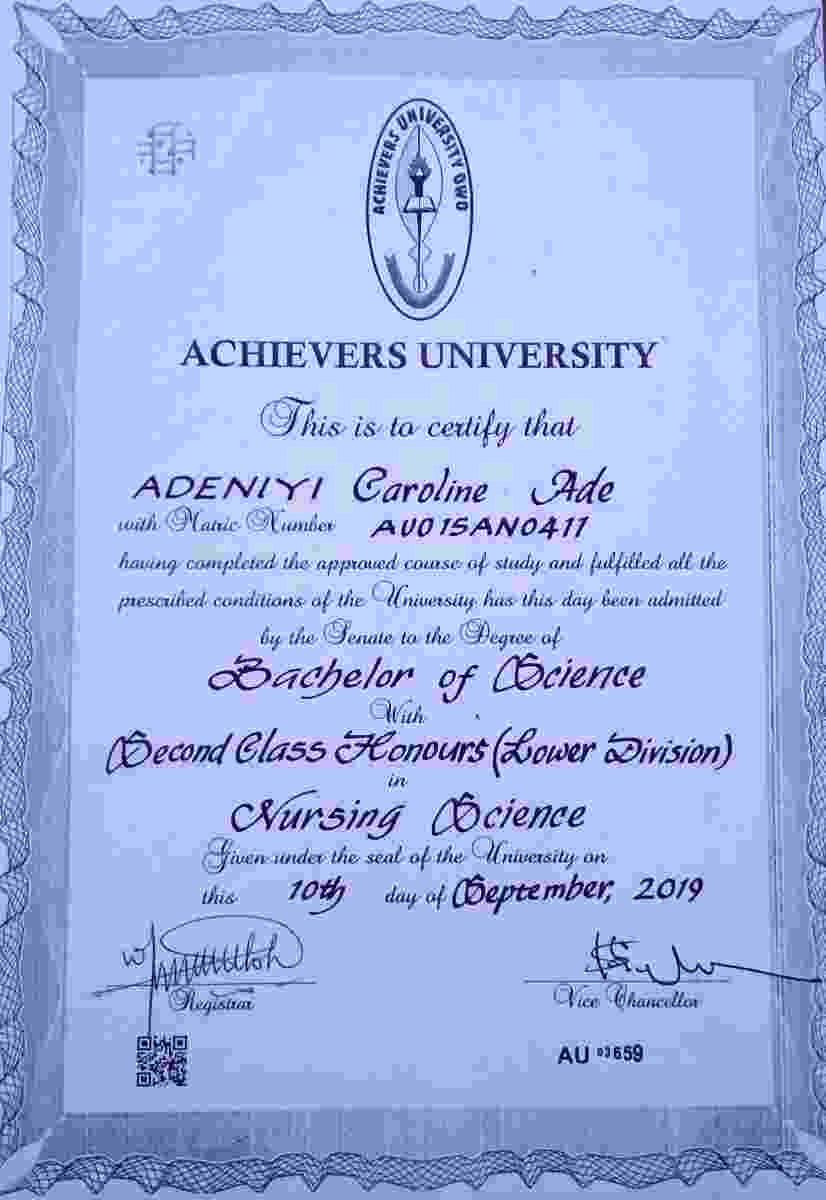 ACHIEVERS UNIVERSITY OWO
ACHIEVERS UNIVERSITY
This is to certify that
ADENIYI Caroline Ade
with Matric Number AU015AN0411
having completed the approved course of study and fulfilled all the
prescribed conditions of the University has this day been admitted
by the Senate to the Degree of
Bachelor of Science
With
Second Class Honours (Lower Division)
in
Nursing Science
Given under the seal of the University on
this 10th day of September, 2019
Registrar
Vice Chancellor
AU 03659